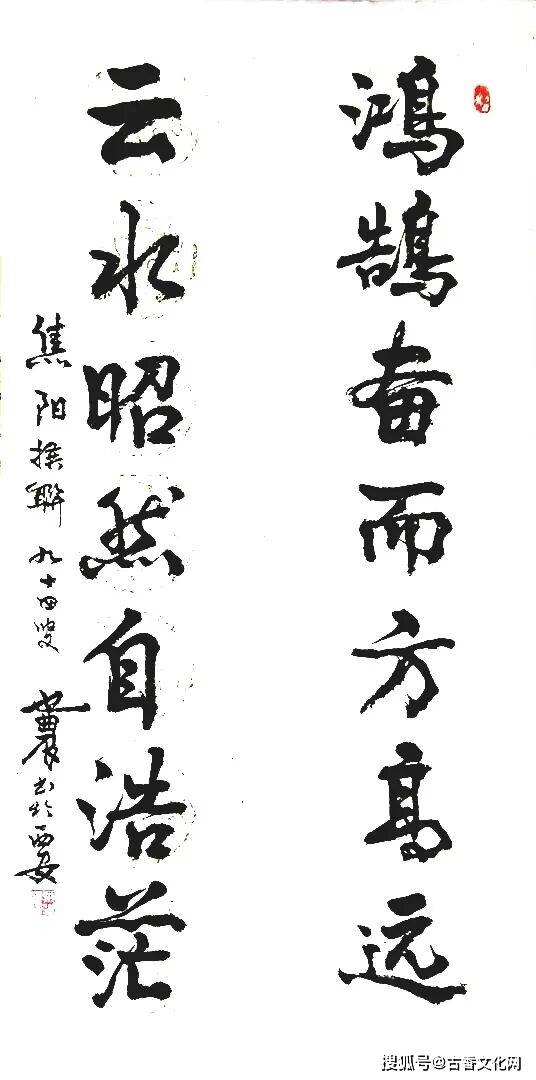 鸿鹄奋而方高远
云水昭然自浩茫
焦阳撰联 九十四叟 农书于西安
搜狐号@古香文化网